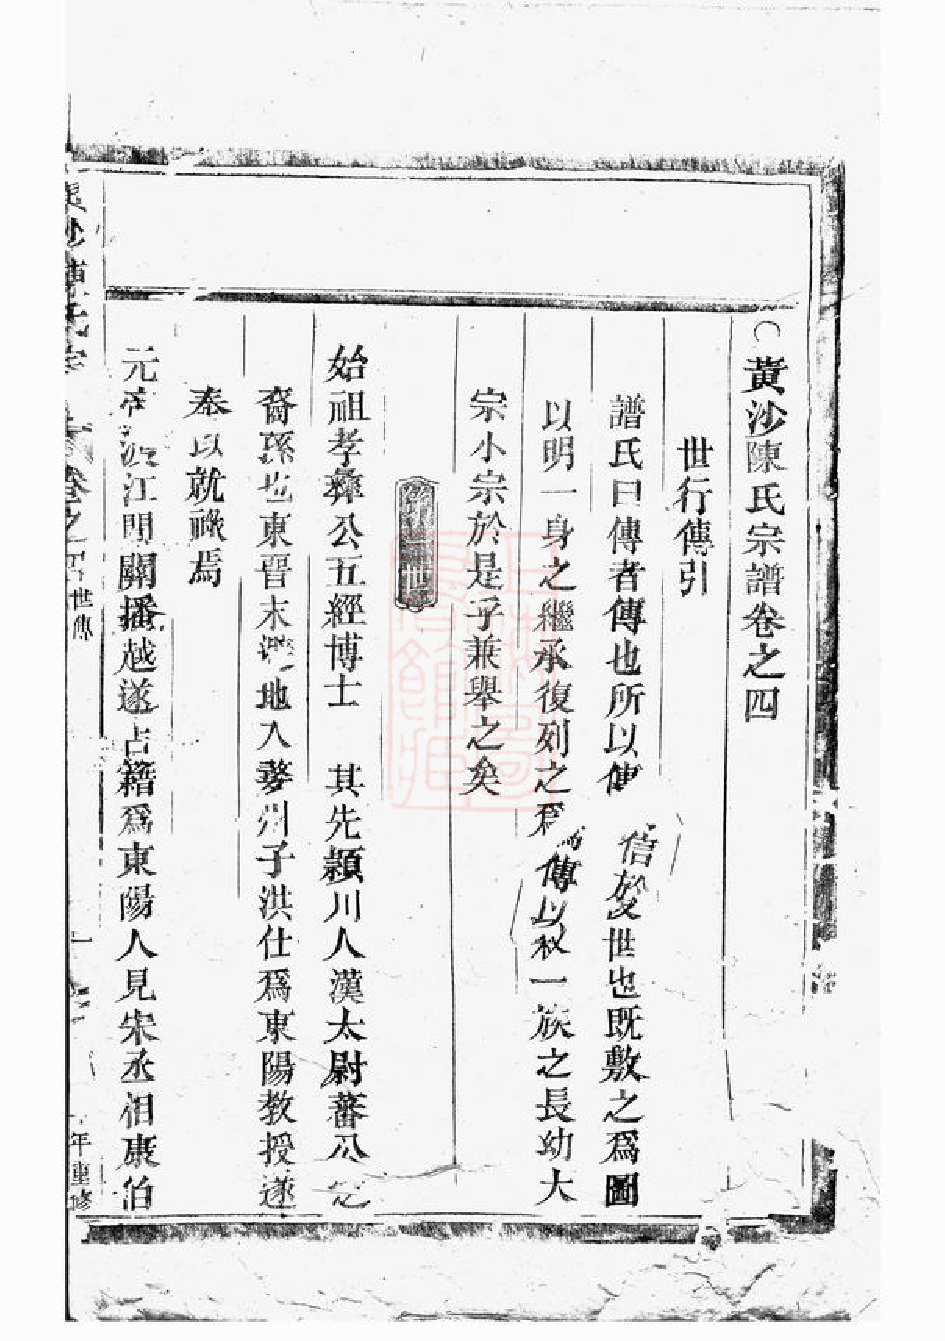 黃沙陳氏宗譜卷之四
世行傳引
譜氏曰傳者傳也所以傳信於後世也既敷之爲圖
以明一身之繼承復列之爲傳以敘一族之長幼大
宗小宗於是乎兼舉之矣
第一世
始祖孝彝公五經博士 其先潁川人漢太尉蕃公之
裔孫也東晉末避地入婺州子洪仕爲東陽教授遂
奉以就祿焉
元帝渡江間關播越遂占籍爲東陽人見宋丞相康伯
黃沙陳氏宗 卷之四 世傳 一 年重修